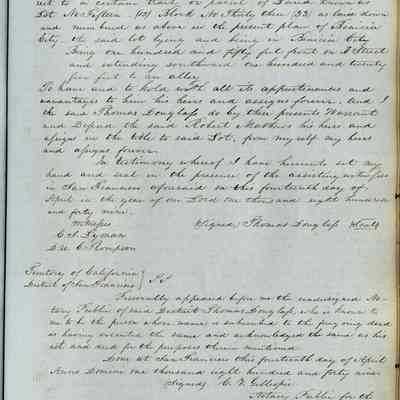 est to a certain tract or parcel of Land known as
Lot No Fifteen (15) Block No Thirty three (33) as laid down
and numbered as above in the present plan of Benicia
City, the said lot lying and being in Benicia City
Being one hundred and fifty feet front on I Street
and extending southward one hundred and twenty
five feet to an alley
To have and to hold with all its appurtenances and
advantages to him his heirs and assigns forever. And I
the said Thomas Douglass do by these presents Warrant
and Defend the said Robert Mathews his heirs and
assigns in the title to said Lot, from my self my heirs
and assigns forever.
In testimony whereof I have hereunto set my
hand and seal in the presence of the assisting witnesses
in San Francisco aforesaid on this fourteenth day of
April in the year of our Lord one thousand eight hundred
and forty nine.
Witnesses Signed, Thomas Douglass (Seal)
C. S. Lyman
De C Thompson
Territory of California }
District of San Francisco } S.S
Personally appeared before me the undersigned No-
tary Public of said District Thomas Douglass, who is known to
me to be the person whose name is subscribed to the foregoing deed
as having executed the same and acknowledged the same as his
act and deed for the purposes therein mentioned.
Done at San Francisco this fourteenth day of April
Anno Domini one thousand eight hundred and forty nine
Signed C. V. Gillespie
Notary Public for the